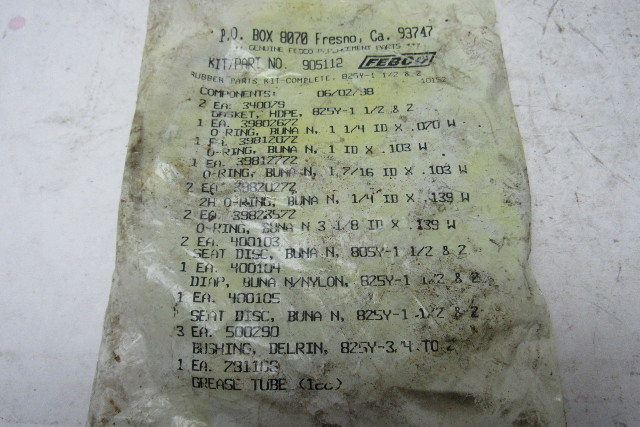 P.O. BOX 8070 Fresno, Ca. 93747
GENUINE FEBCO REPLACEMENT PARTS
KIT/PART NO. 905112 FEBCO
RUBBER PARTS KIT-COMPLETE, 825Y-1 1/2 & 2
COMPONENTS: 06/02/98
2 EA. 340079
GASKET, HDPE, 825Y-1 1/2 & 2
1 EA. 39802672
O-RING, BUNA N, 1 1/4 ID X .070 W
1 EA. 39812072
O-RING, BUNA N, 1 ID X .103 W
1 EA. 39812772
O-RING, BUNA-N, 1,7/16 ID X .103 W
2 EA. 39820272
2H O-RING, BUNA N, 1/4 ID X .139 W
2 EA. 39823572
O-RING, BUNA N 3 1/8 ID X .139 W
2 EA. 400103
SEAT DISC, BUNA N, 805Y-1 1/2 & 2
1 EA. 400104
DIAP, BUNA N/NYLON, 825Y-1 1/2 & 2
1 EA. 400105
SEAT DISC, BUNA N, 825Y-1 1/2 & 2
3 EA. 500290
BUSHING, DELRIN, 825Y-3/4 TO 2
1 EA.
GREASE TUBE (1cc)